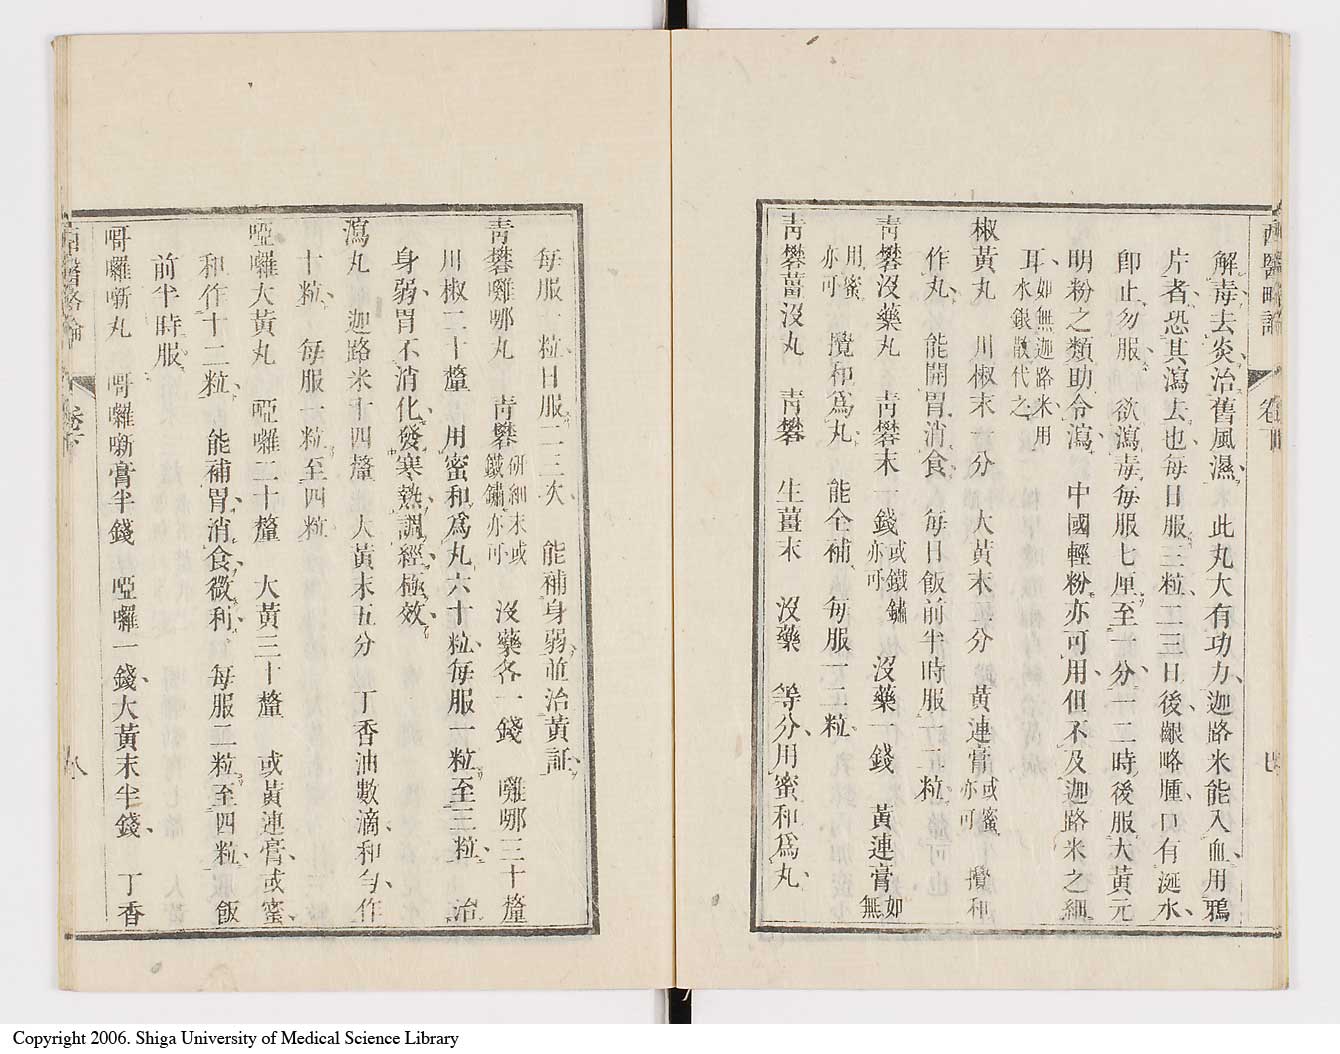 解毒去炎、治舊風濕、此丸大有功力、迦路米能入血、用鴉
片者、恐其瀉去也、每日服三粒、二三日後、齦略腫、口有涎水、
卽止、勿服、欲瀉毒、每服七厘至一分、一二時後、服大黃元
明粉之類、助令瀉、中國輕粉亦可用、但不及迦路米之細
耳、如無迦路米、用水銀散代之、
椒黃丸 川椒末一分 大黃末二分 黃連膏或蜜亦可 攪和
作丸、能開胃消食、每日飯前半時服一二粒、
靑礬沒藥丸 靑礬末一錢或鐵鏽亦可 沒藥一錢 黃連膏如無
用蜜亦可 攪和爲丸、能全補、每服一二粒、
靑礬薑沒丸 靑礬 生薑末 沒藥 等分、用蜜和爲丸、
每服一粒、日服二三次、能補身弱、並治黃証、
靑礬囄哪丸 靑礬研細末或鐵鏽亦可 沒藥各一錢 囄哪三十釐
川椒二十釐 用蜜和爲丸六十粒、每服一粒至三粒、治
身弱、胃不消化、發寒熱、調經極效、
瀉丸 迦路米十四釐 大黃末五分 丁香油數滴、和勻、作
十粒、每服一粒至四粒
啞囉大黃丸 啞囉二十釐 大黃三十釐 或黃連膏、或蜜、
和作十二粒、能補胃、消食、微利、每服二粒至四粒、飯
前半時服、
哥囉噺丸 哥囉噺膏半錢 啞囉一錢、大黃末半錢、丁香
西醫略論
卷下
七
西醫略論
卷下
八
Copyright 2006. Shiga University of Medical Science Library